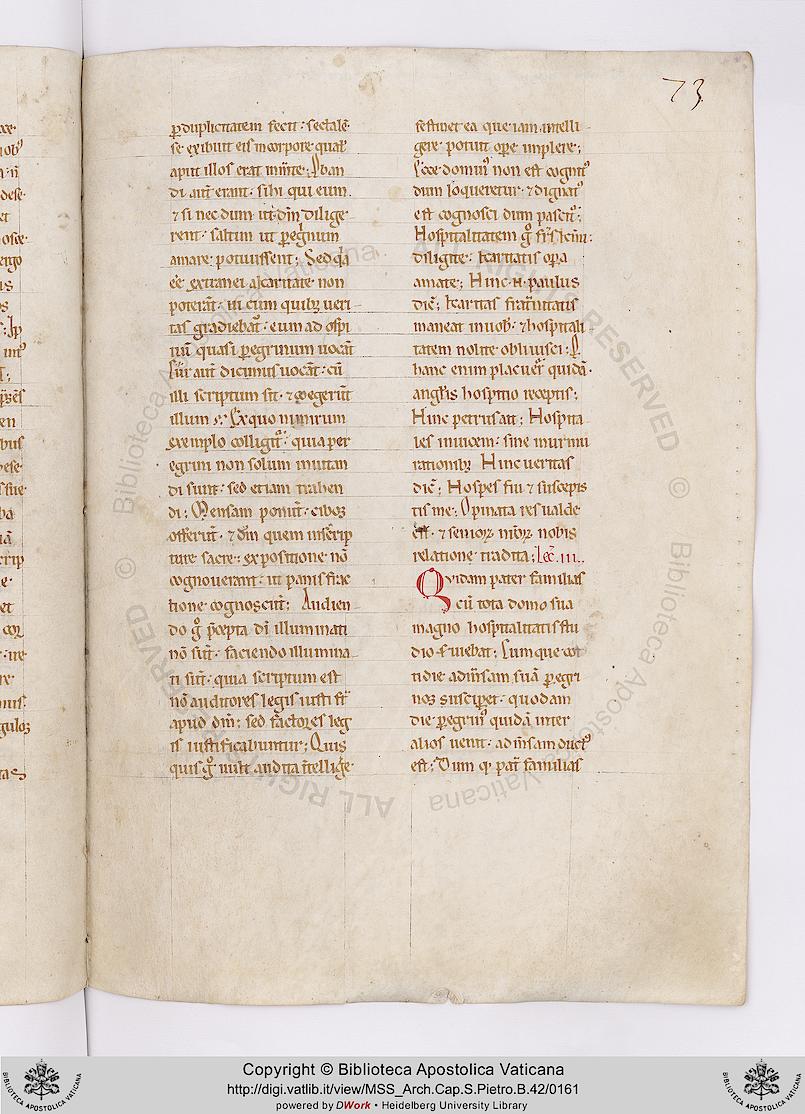 73
ꝑ duplicitatem fecit · sed talē
se exibuit eis in corpore qual'
aput illos erat in mente; Proban
di aut̄ erant · si hi qui eum
⁊ si nec dum ut dm̄ dilige
rent · saltim ut peg̃num
amare potuissent; Sed q̃a
ee̅ extranei a caritate non
poterāt · hi cum quibꝫ ueri
tas gradiebat᷑ · eum ad ospi
tiū quasi ꝑegrinum uocāt
Cur aut̄ dicimus uocāt · cū
illi scriptum sit · ⁊ coegerūt
illum; Ex quo nimirum
exemplo colligit᷑ · quia per
egrini non solum inuitan
di sunt · sed etiam trahen
di; Mensam ponūt · cibos
offerūt · ⁊ dm̄ quem in scrip
ture sacre · expositione nō
cognouerant · in panis frac
tione cognoscūt; Audien
do g̊ p̄cepta dī illuminati
nō sūt · faciendo illumina
ti sūt · quia scriptum est
nō auditores legis iusti st̄
apud dm̄; sed factores leg
is iustificabuntur; Quis
quis g̊ uult audita ītellige
festinet ea que iam intelli
gere potuit oꝑe implere;
Ecce dominꝰ non est cognitꝰ
dum loqueretur · ⁊ dignatꝰ
est cognosci dum pascit᷑;
Hospitalitatem g̊ fr̄s kr̄mi ·
diligite · karitatis oꝑa
amate; Hinc .n. paulus
dic̄; Karitas frat̄nitatis
maneat in uob̄ · ⁊ hospitali
tatem nolite obliuisci; P
hanc enim placuer̄ quidā ·
anglis hospitio receptis;
Hinc petrus ait; Hospita
les inuicem · sine murmu
rationibꝫ Hinc ueritas
dic̄; Hospes fui ⁊ suscepis
tis me; Opinata res ualde
est · ⁊ seniorꝫ nr̄orꝫ nobis
relatione tradita; Lec̄. III.
Quidam pater familias
cū tota domo sua
magno hospitalitatis stu
dio s̄uiebat; Cumque cot
tidie ad mīsam suā ꝑegri
nos susciꝑet · quodam
die ꝑegrinꝰ quidā inter
alios uenit · ad mīsam ductꝰ
est; Dum q; pat̄ familias
Copyright © Biblioteca Apostolica Vaticana
http://digi.vatlib.it/view/MSS_Arch.Cap.S.Pietro.B.42/0161
powered by DWork • Heidelberg University Library